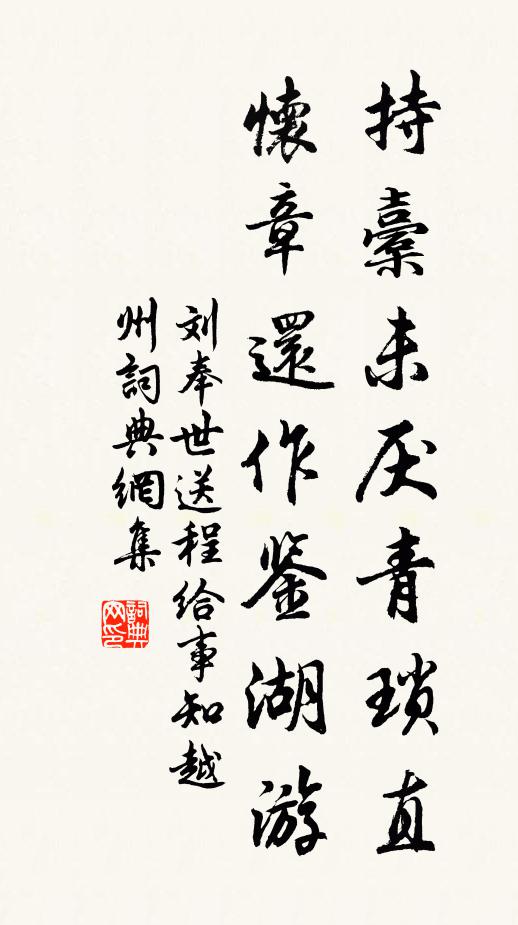 持橐未厌青瑣直
懷章還作鉴湖游
刘奉世送程给事知越
州詞典網集
詞典网印